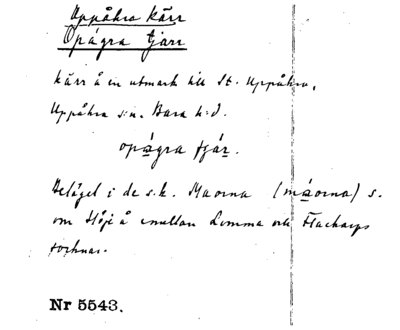 Uppåkra kärr
Opågra tjärr
Kärr å en utmark till St. Uppåkra,
Uppåkra s:n. Bara h:d.
opágra tjár.
Belägel i de s.k. Maorna (máorna) s.
om Höje å emellan Lomma och Flackarps
socknar.
Nr 5543.